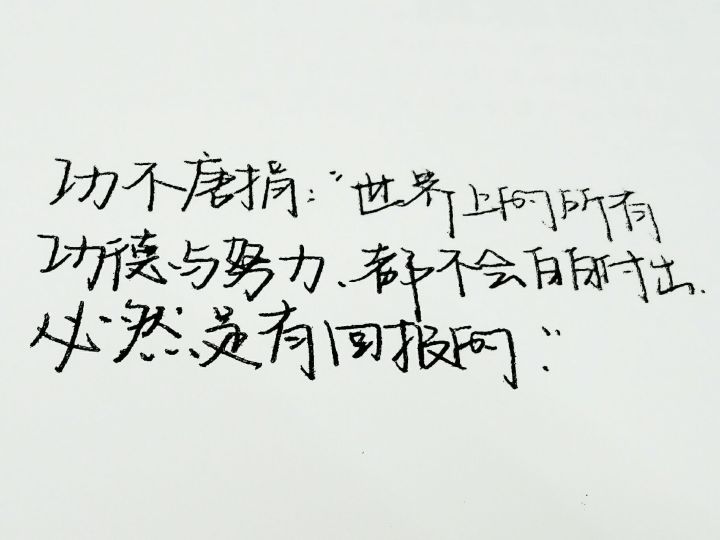 功不唐捐:"世界上的所有
功德与努力、都不会白白付出.
必然是有回报的."